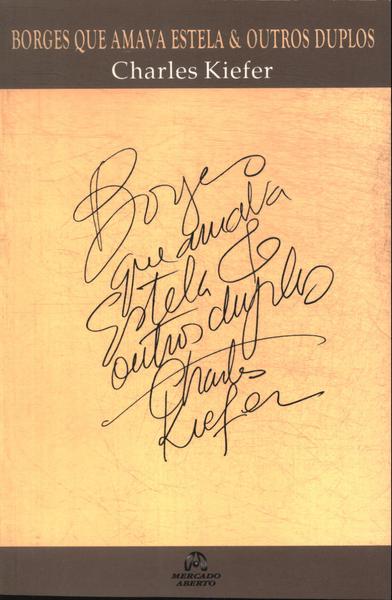 BORGES QUE AMAVA ESTELA & OUTROS DUPLOS
Charles Kiefer
Borges
que amava
Estela &
outros duplos
Charles
Kiefer
MERCADO
ABERTO